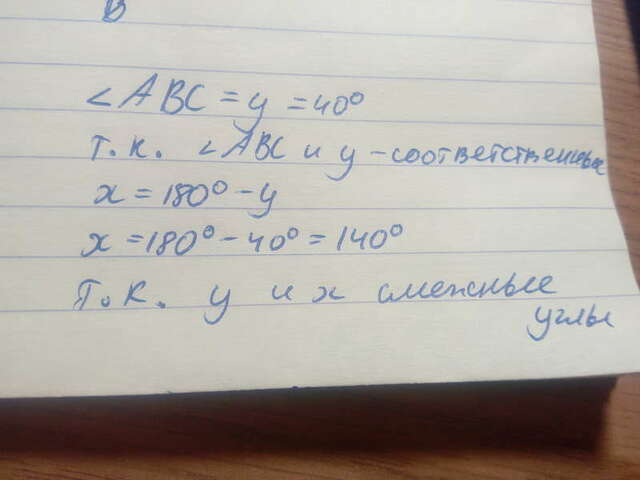 В
∠ABC = y = 40°
т.к. ∠ABC и y - соответственные
x = 180° - y
x = 180° - 40° = 140°
Т.к. y и x смежные
углы